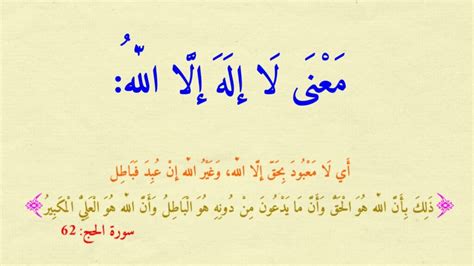 مَعْنَى لَا إِلَهَ إِلَّا اللّٰهُ:
أَي لَا مَعْبُودَ بِحَقٍ إِلَّا اللّٰه، وَغَيْرُ اللّٰه إِنْ عُبِدَ فَبَاطِل
﴿ذَلِكَ بِأَنَّ اللّٰه هُوَ الْحَقُّ وَأَنَّ مَا يَدْعُونَ مِنْ دُونِهِ هُوَ الْبَاطِلُ وَأَنَّ اللّٰه هُوَ الْعَلِيُّ الْكَبِيرُ﴾
سورة الحج: 62